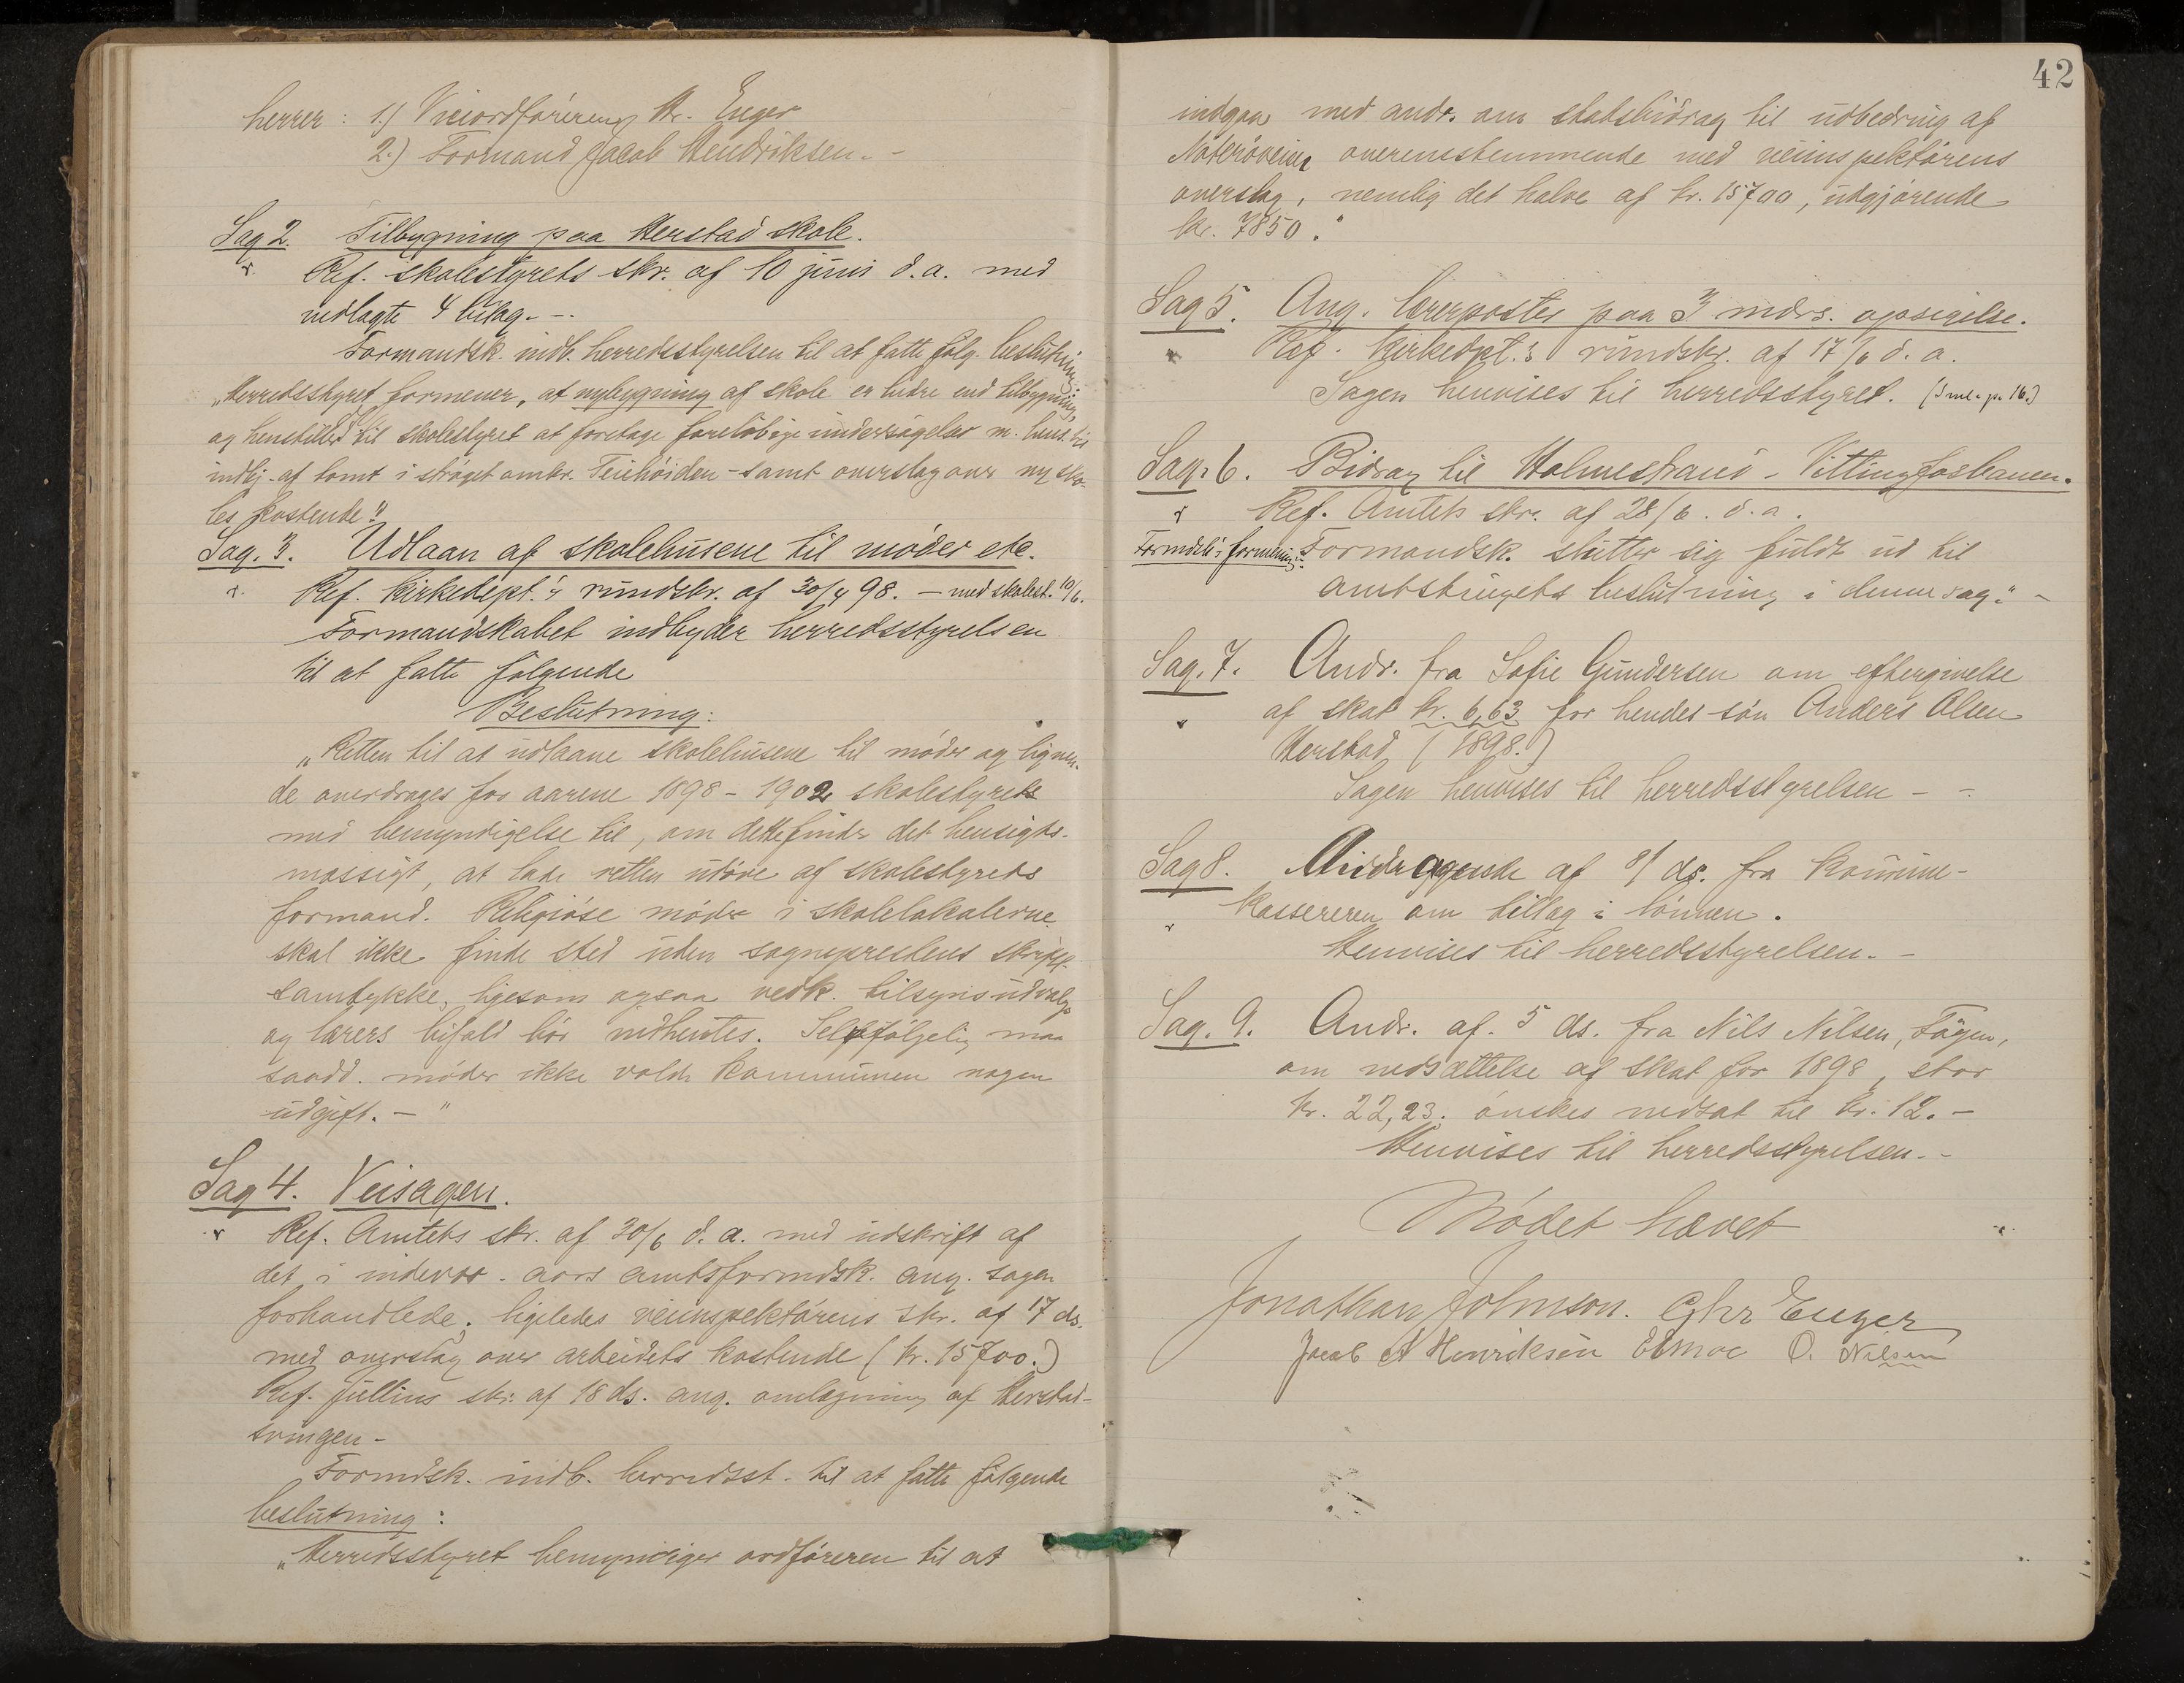 herrer: 1.) Viceordföreren, Hr. Enger
2.) Formand Jacob Hendriksen. -
Sag 2. Tilbygning paa Herstad skole.
Ref. skolestyrets skr. af 10 juni d. a. med
vedlagte 4 bilag. -.
Formandsk. indb. herredsstyrelsen til at fatte fölg. beslutning:
"Herredsstyret formener, at nybygning af skole er bedre end tilbygning,
og henstilled til skolestyret at foretage forelöbige undersögelser m. hens. til
indkj. af tomt i ströget omkr. Teiehöiden - samt overslag over ny sko-
les kostende."
Sag. 3. Udlaan af skolehusene til möder etc.
Ref. Kirkedept.'s rundskr. af 30/4 98. - med skolest. 10/6.
Formandskabet indbyder herredsstyrelsen
til at fatte fölgende
Beslutning:
"Retten til at udlaane skolehusene til möder og lignen-
de overdrages for aarene 1898 - 1902 skolestyret
med bemyndigelse til, om dette finder det hensigts-
mæssigt, at lade retten udöve af skolestyrets
formand. Religiöse möder i skolelokalerne
skal ikke finde sted uden sogneprestens skriftl.
samtykke, ligesom ogsaa vedk. tilsynsudvalgs
og lærers bifald bör indhentes. Selvfölgelig maa
saadd. möder ikke volde kommunen nogen
udgift. - "
Sag 4. Veisagen.
Ref. Amtets skr. af 30/6 d. a. med udskrift af
det i indevær. aars amtsformdsk. ang. sagen
forhandlede; ligeledes veiinspektörens skr. af 17 ds.
med overslag over arbeidets kostende (kr. 15700.)
Ref. Jullius skr. af 18 ds. ang. omlægning af Herstad-
svingen -
Formdsk. indb. herredsst. til at fatte fölgende
beslutning:
"Herredsstyret bemyndiger ordföreren til at
42
indgaa med andr. om statsbidrag til udbedring af
Nöteröveien overensstemmende med veiinspektörens
overslag, nemlig det halve af kr. 15700, udgjörende
kr. 7850."
Sag 5. Ang. lærerposter paa 3 mdrs. opsigelse.
Ref. Kirkedpt.'s rundskr. af 17/6 d. a.
Sagen henvises til herredsstyret. (Sml. p. 16.)
Sag. 6. Bidrag til Holmestrand - Vittingfosbanen.
Ref. Amtets skr. af 28/6. d. a.
Formandsk. slutter sig fuldt ud til
amtstingets beslutning i denne sag." -
Sag. 7. Andr. fra Sofie Gundersen om eftergivelse
af skat kr. 6,63 for hendes sön Anders Olsen
Herstad (1898.)
Sagen henvises til herredsstyrelsen - -
Sag 8. Andragende af 8/ ds. fra Kommune-
kassereren om tillæg i lönnen.
Henvises til herredsstyrelsen. -
Sag. 9. Andr. af. 5 ds. fra Nils Nilsen,
om nedsættelse af skat for 1898, stor
kr. 22,23. önskes nedsat til kr. 12. -
Henvises til herredsstyrelsen. -
Mödet hævet
Jonathan Johnson. Chr Enger
Jacob A Henriksen O. Nilsen